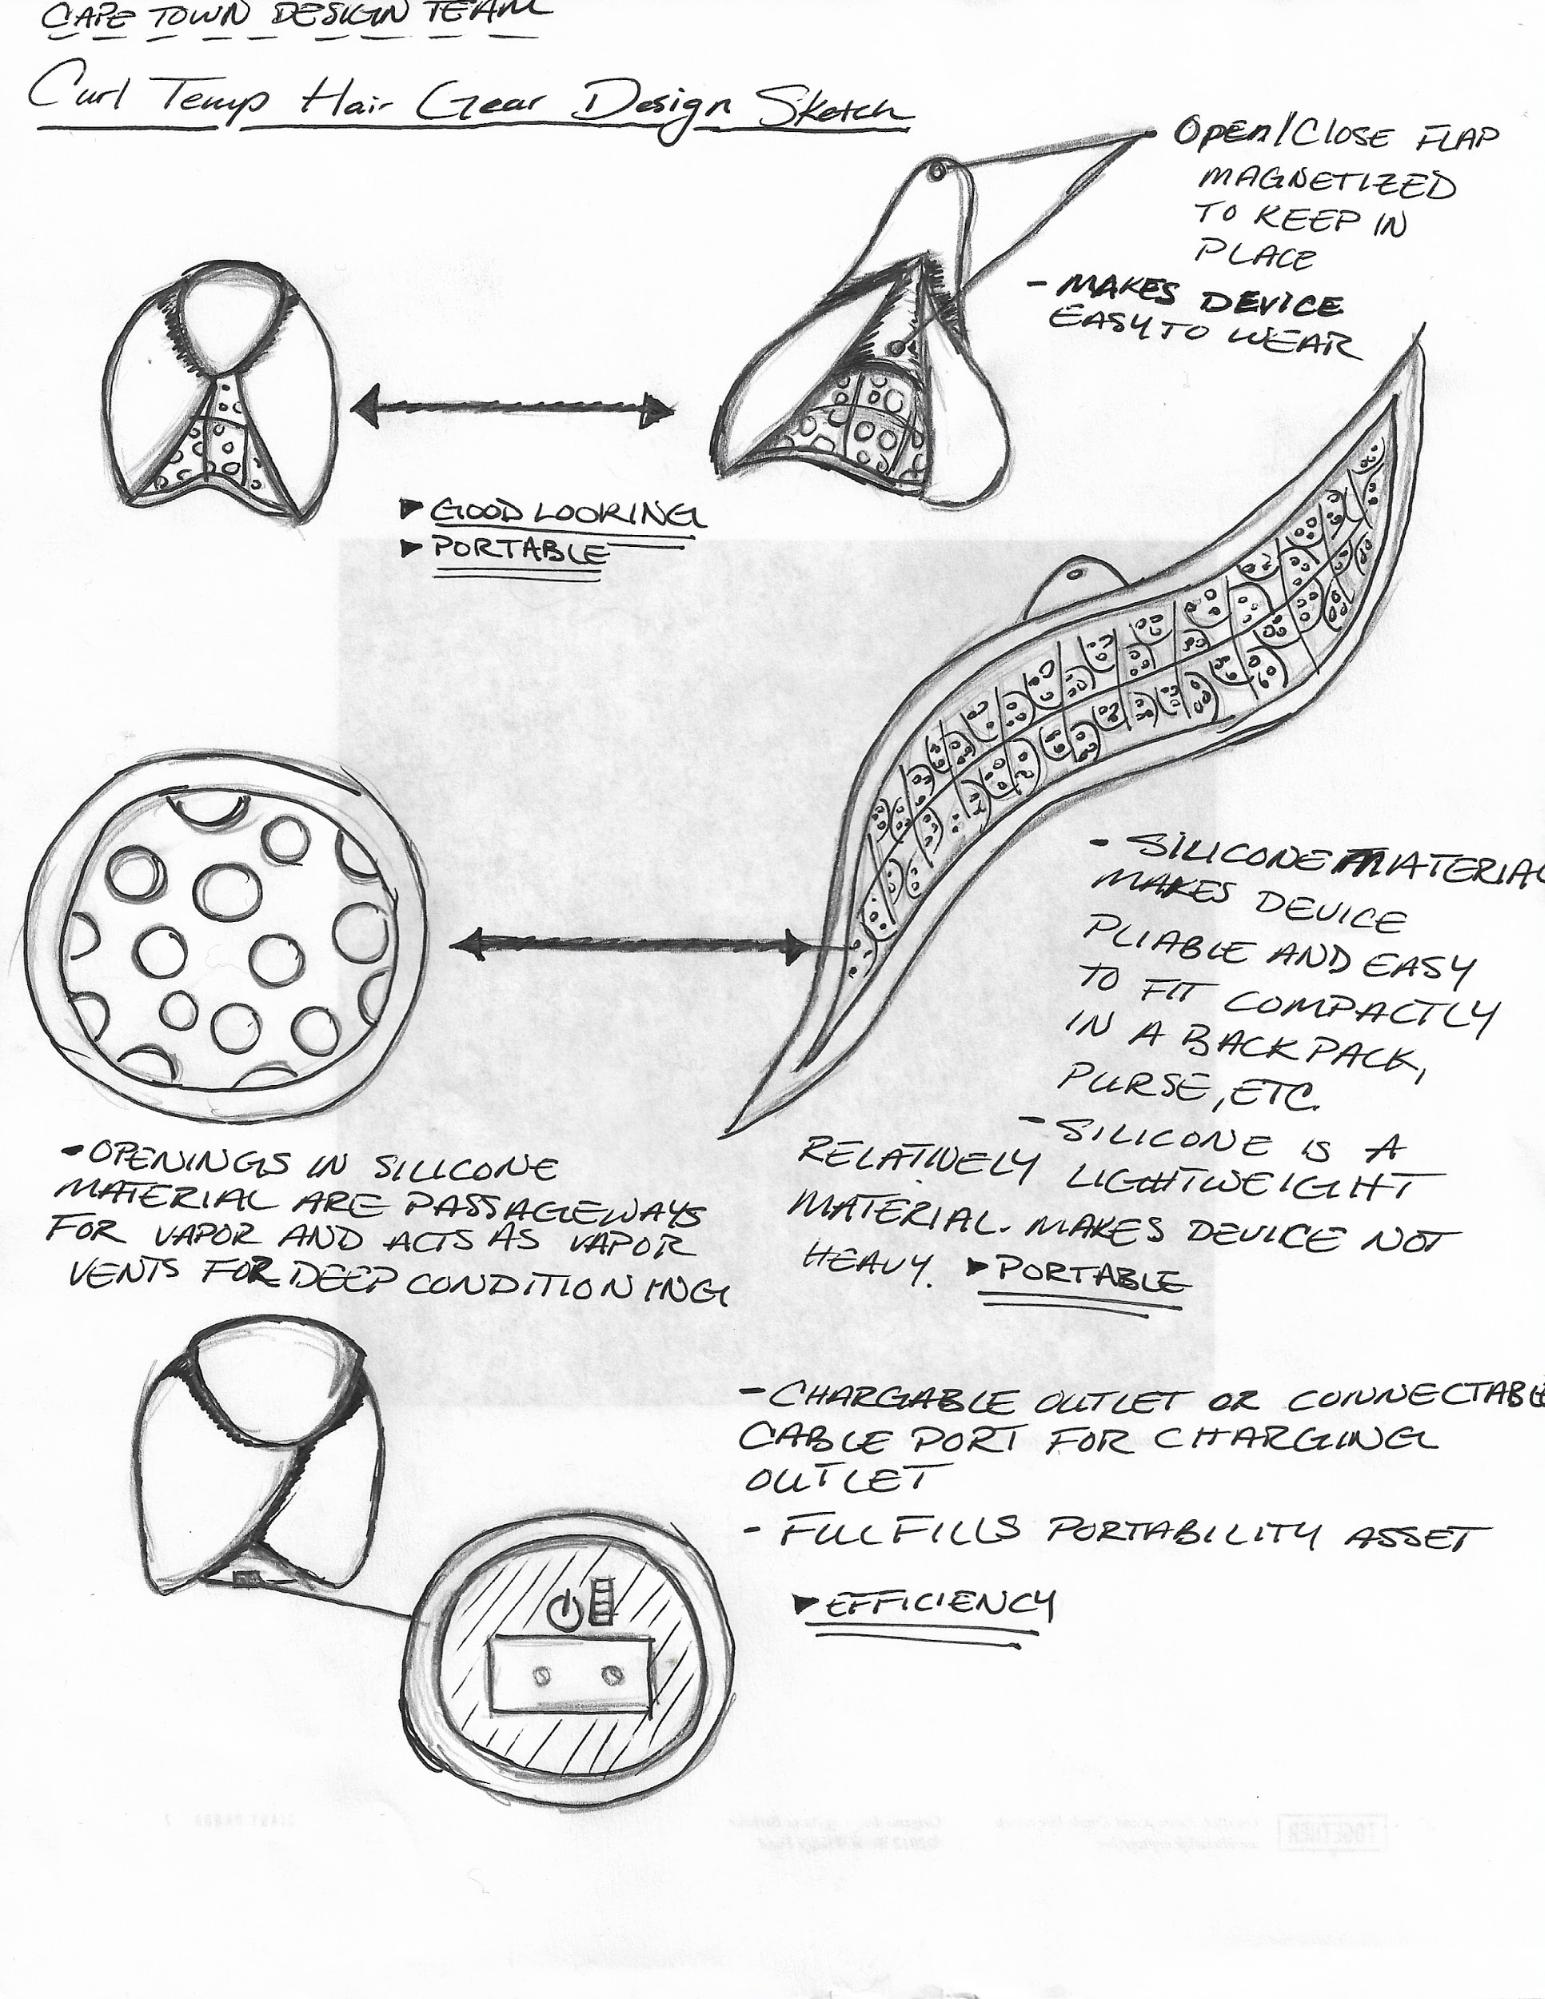 CAPE TOWN DESIGN TEAM
Curl Temp Hair Gear Design Sketch
OPEN/CLOSE FLAP
MAGNETIZED
TO KEEP IN
PLACE
- MAKES DEVICE
EASY TO WEAR
▶ GOOD LOOKING
▶ PORTABLE
- SILICONE MATERIAL
MAKES DEVICE
PLIABLE AND EASY
TO FIT COMPACTLY
IN A BACKPACK,
PURSE, ETC.
- SILICONE IS A
RELATIVELY LIGHTWEIGHT
MATERIAL. MAKES DEVICE NOT
HEAVY. ▶ PORTABLE
- OPENINGS IN SILICONE
MATERIAL ARE PASSAGEWAYS
FOR VAPOR AND ACTS AS VAPOR
VENTS FOR DEEP CONDITIONING
- CHARGABLE OUTLET OR CONNECTABLE
CABLE PORT FOR CHARGING
OUTLET
- FULFILLS PORTABILITY ASSET
▶ EFFICIENCY
TOGETHER